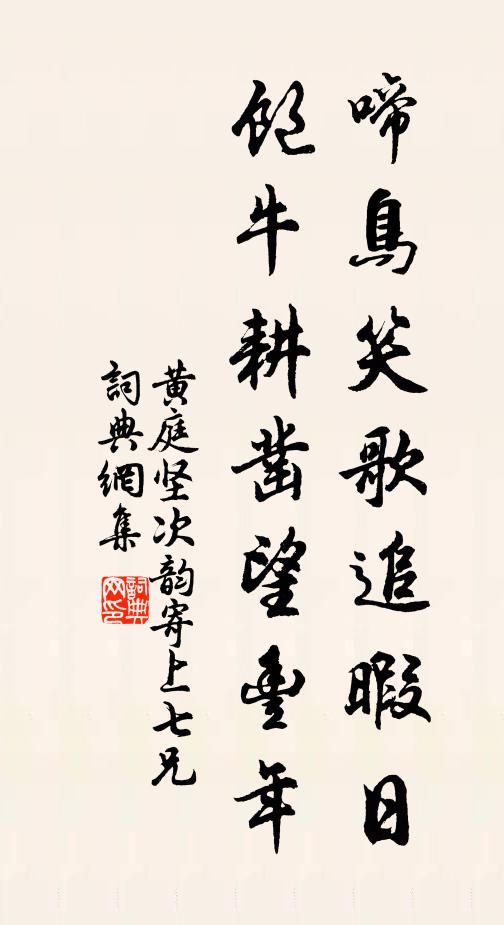 啼鳥笑歌追暇日
飽牛耕凿望豐年
黄庭坚次韵寄上七兄
詞典網集
詞典网印